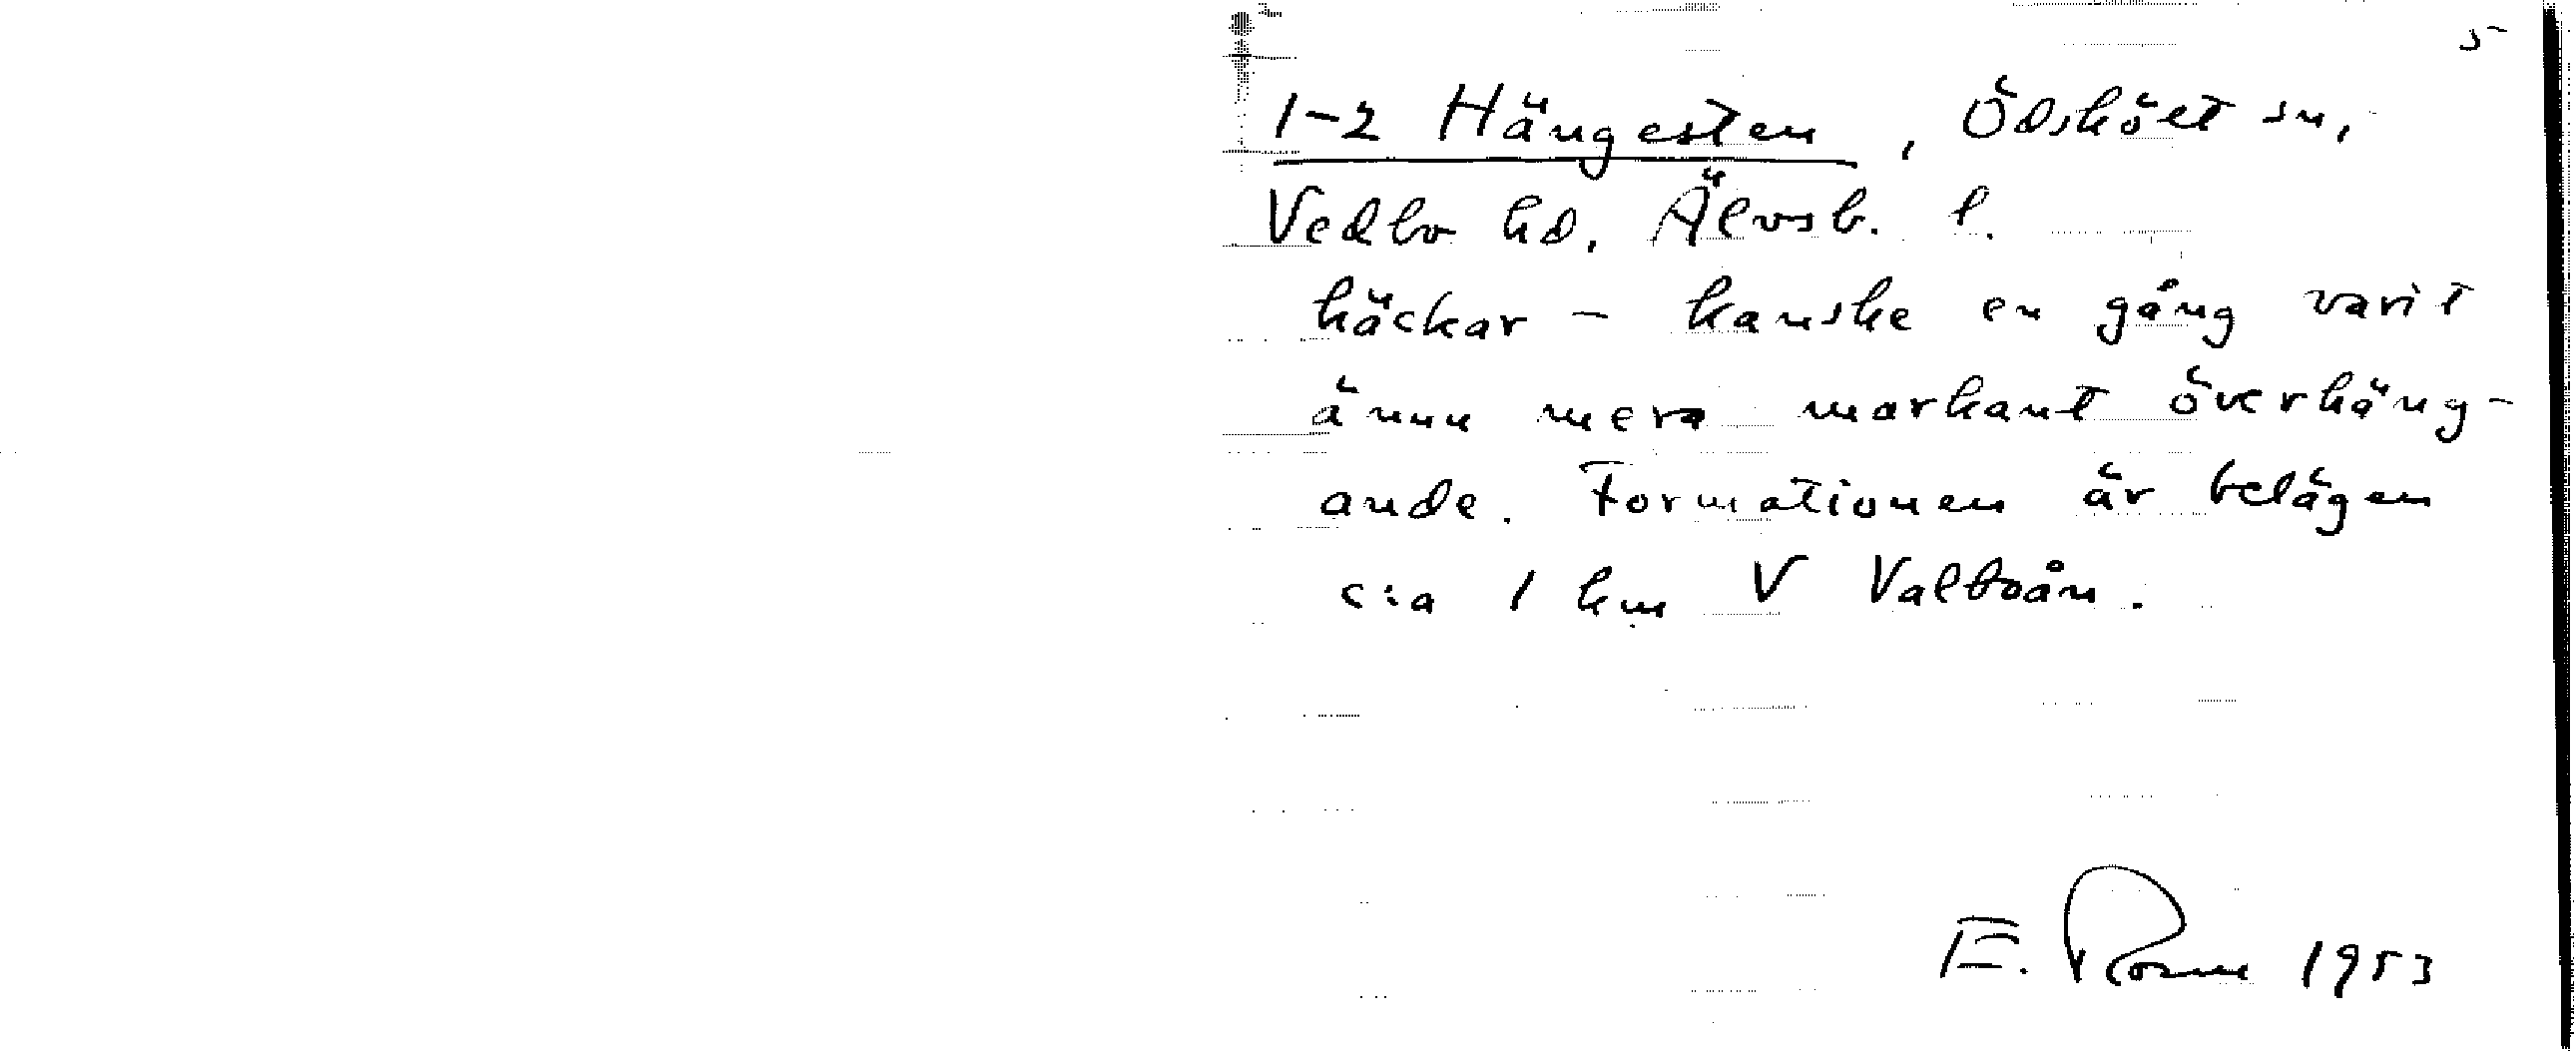 5
1-2 Hängesten, Ödsköet sn,
Vedbo hd. Älvsb. l.
häckar - kanske en gång varit
ännu mera markant överhäng-
ande. Formationen är belägen
c:a 1 km V Valboån.
E. 1953